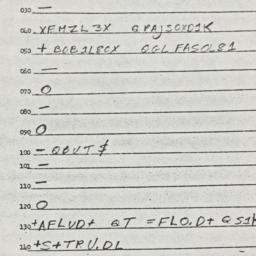 030 —
040 XFMZL3X QPAJSOXD1K
050 + BOB1L8CX QGLFASOL81
060 —
070 O
080 —
090 O
100 — QCUT $
101 —
110 —
120 O
130 +AFLUD+ QT =FLO.D+ QS1K
140 +S+TPU.DL